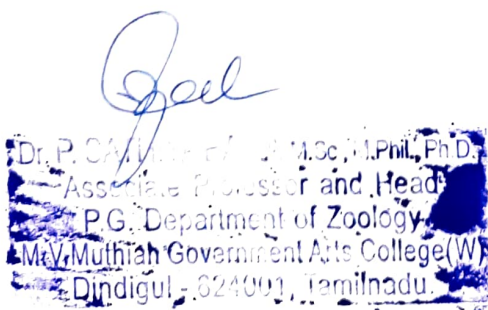 Dr. P. M.Sc., M.Phil., Ph.D.
Associate Professor and Head
P.G. Department of Zoology
M.V. Muthiah Government Arts College(W)
Dindigul - 624001, Tamilnadu.